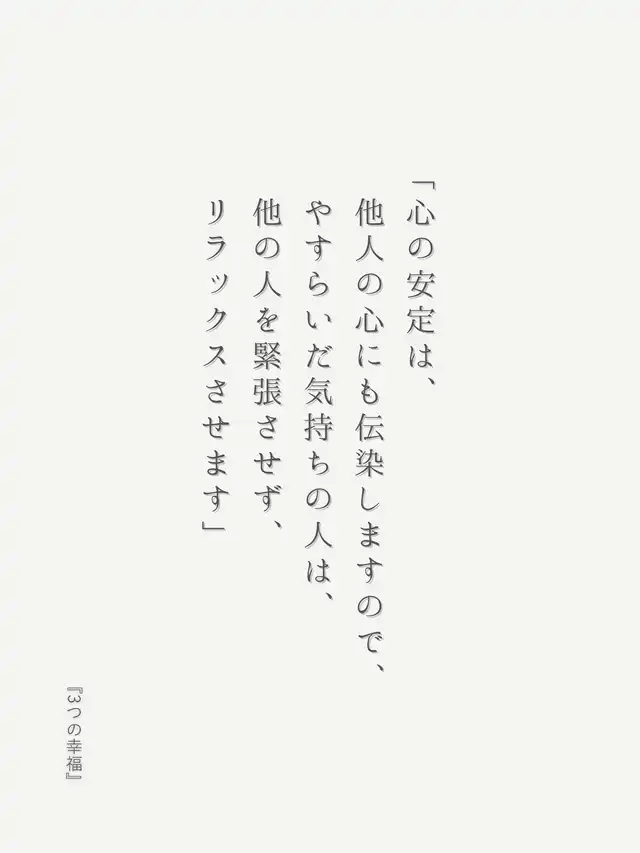 「心の安定は、
他人の心にも伝染しますので、
やすらいだ気持ちの人は、
他の人を緊張させず、
リラックスさせます」
『3つの幸福』